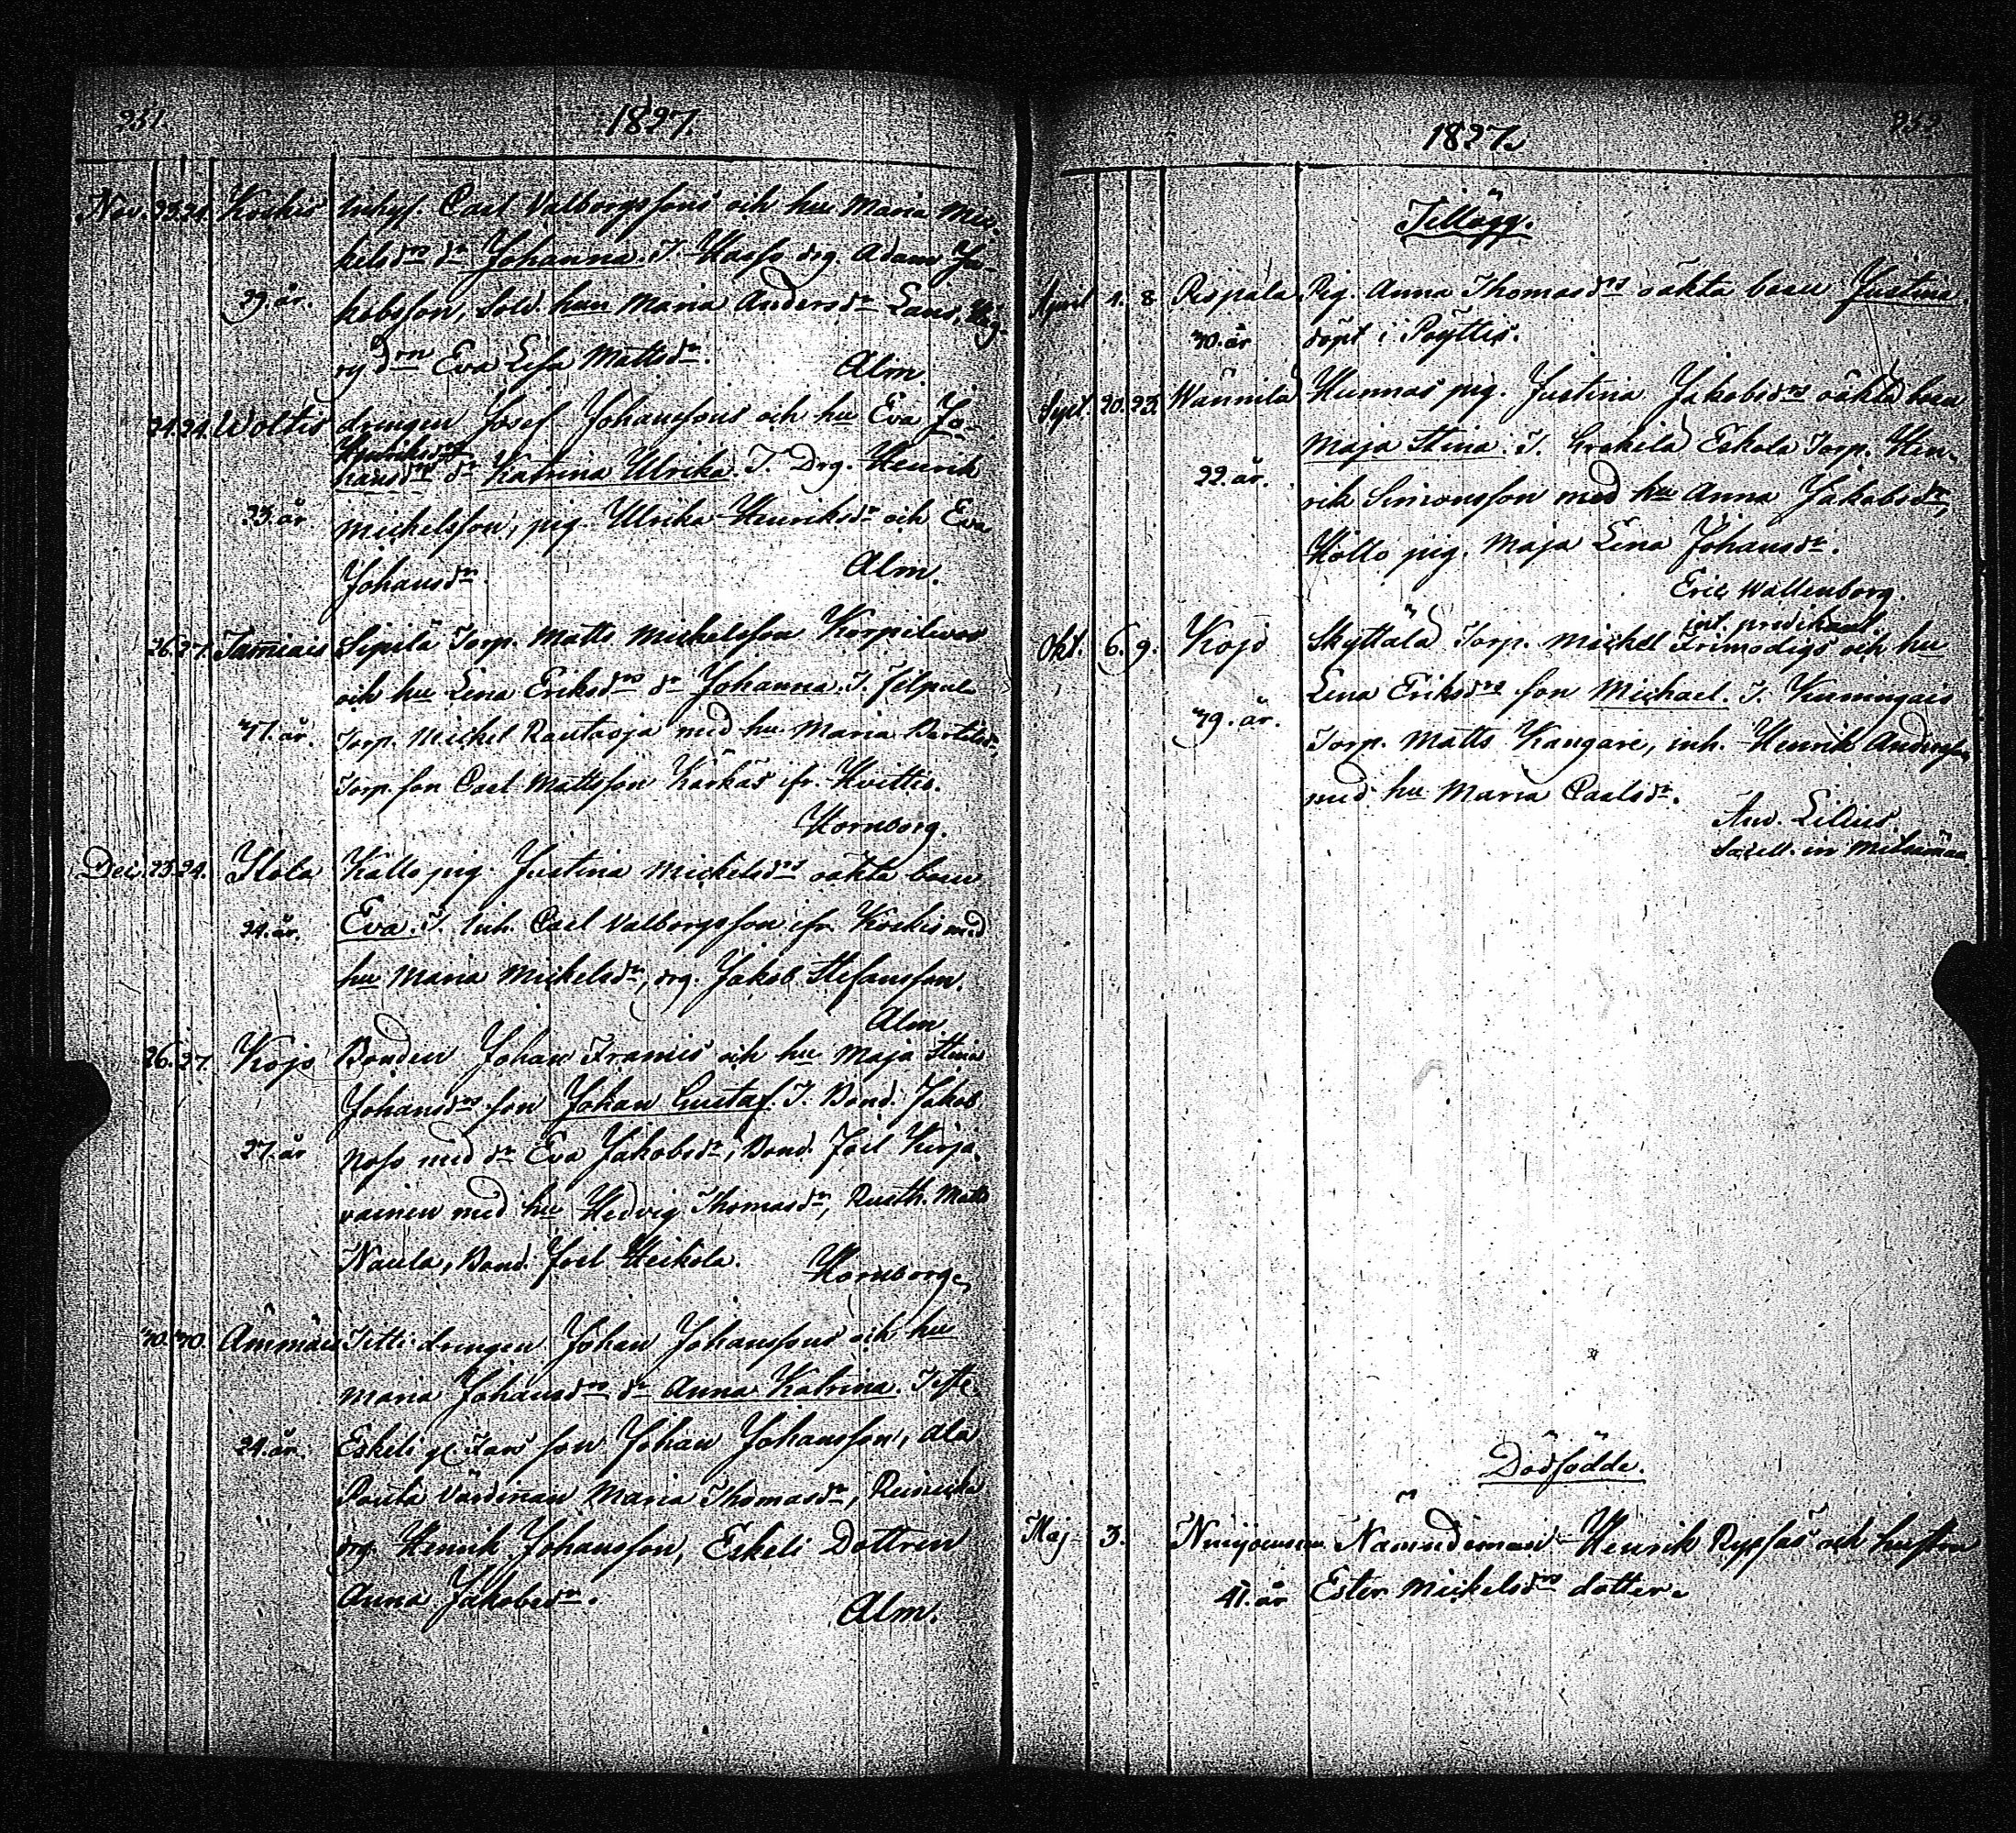 251.
1827.
Nov. 23. 24. Koskis Inhys. Carl Valborgssons och hu Maria Mic-
kelsdrs dr Johanna. T. Hasso drg. Adam Ja-
29. år. kobsson, Sold. hun Maria Andersdr Laus, Hög-
Eva Lisa Mattsdr. Alm.
24. 24. Woltis drengen Josef Johanssons och hu Eva Jo-
Henriksdrs
hansdrs dr Katrina Ulrika. T. Drg. Henrik
23. år Michelsson, pig. Ulrika Henriksdr och Eva
Johansdr. Alm.
26. 27. Tamiais Sipilä Torp. Matts Mickelsson Korpilevos
och hu Lena Eriksdrs dr Johanna. T. Filpula
41. år. Torp. Mickel Rautaoja med hu Maria Bertilsdr,
Torp. son Carl Mattsson Kärkäs ifr. Hvittis.
Hornborg.
Dec. 23. 24. Ilola Kallo pig. Justina Mickelsdrs oäkta barn
24. år. Eva. T. Inh. Carl Valborgsson ifr. Koskis med
hu Maria Mickelsdr, drg. Jakob Stefansson.
Alm.
26. 27. Kojo Bonden Johan Framis och hu Maja Stina
Johansdrs son Johan Gustaf. T. Bond. Jakob
27. år Noso med dr Eva Jakobsdr, Bond. Joel Kirja-
vainen med hu Hedvig Thomasdr, Rusth. Matts
Naula, Bond. Joel Heikola. Hornborg.
30. 30. Ämmäis Titti drengen Johan Johanssons och hu
Maria Johansdrs dr Anna Katrina. Teste.
24. år. Eskeli gl. Fars son Johan Johansson, Ala
Pouta Värdinan Maria Thomasdr,
drg. Henrik Johansson, Eskeli Dottren
Anna Jakobsdr. Alm.
1827.
252
Tillägg.
April 1. 8. Rispala Pig. Anna Thomasdrs oäkta barn Justina,
30. år döpt i Pöyttis.
Sept. 20. 23. Wännilä Hunnas pig. Justina Jakobsdrs oäkta barn
Maja Stina. T. Krekilä Eskola Torp. Hen-
22. år. rik Simonsson med hu Anna Jakobsdr,
Hollo pig. Maja Lena Johansdr.
Eric Wallenborg.
int. predikant
Okt. 6. 9. Kojo Skyttälä Torp. Michel Frimodigs och hu
Lena Eriksdrs son Michael. T. Kumingais
39. år. Torp. Matts Kangare, inh. Henrik Andersson
med hu Maria Carlsdr.
And. Lilius.
Sacell. in Metsämaa
Dödfödde.
Maj 3. Nämndeman Henrik Rypsäs och hustru
41. år Ester Mickelsdrs dotter.